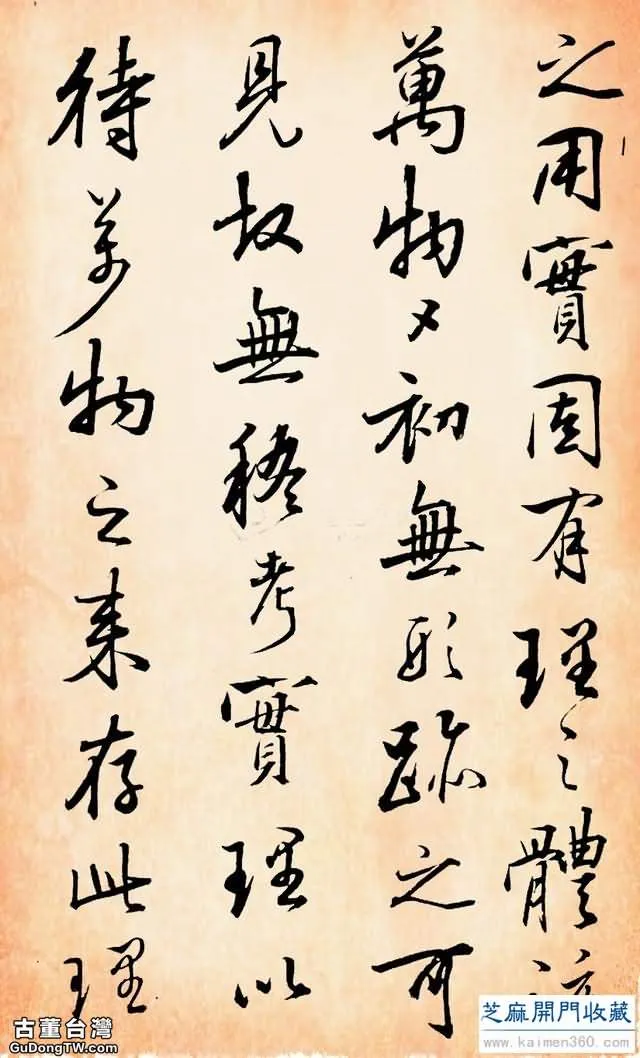 之用實固有理之體
萬物之初無形跡之可
見故無稽考實理以
待萬物之來存此理
古董台灣
GuDongTW.com
芝麻開門收藏
www.kaimen360.com